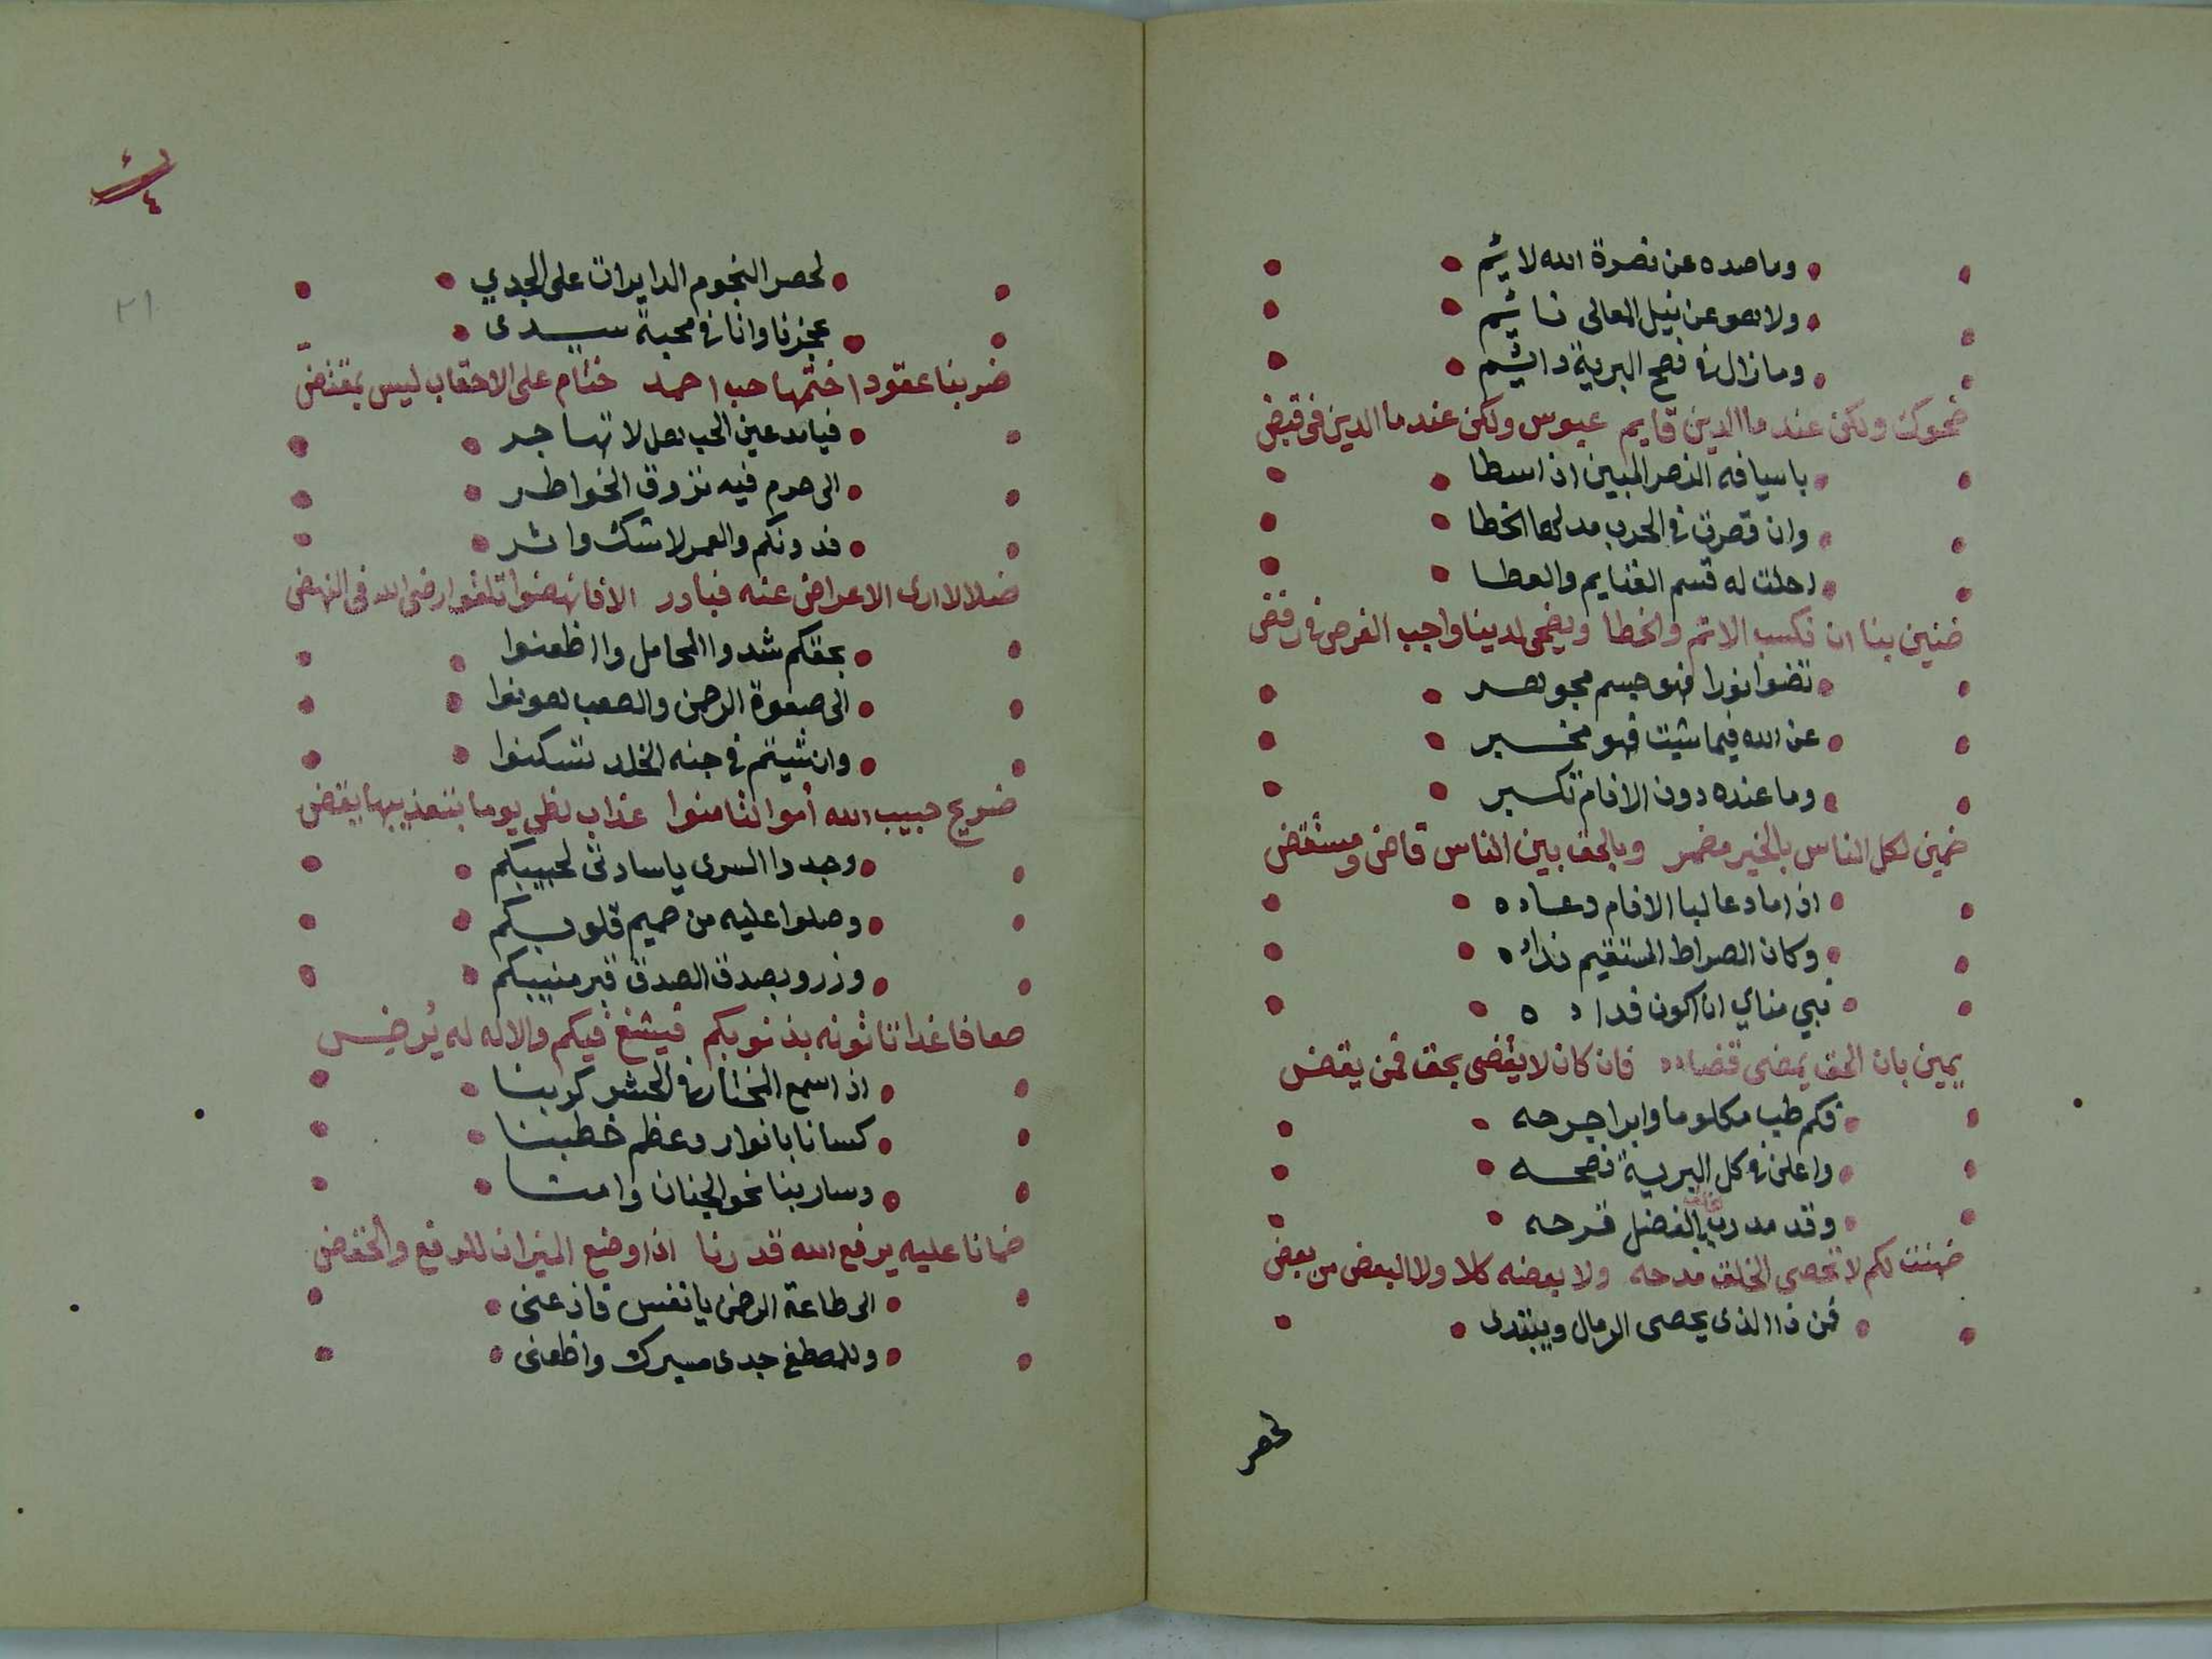 وما صده عن نصرة الله لايم
ولا هو عن نيل المعالى نايم
وما زال فى نصح البرية دايم
ضحوك ولكن عند ما الدين قايم عبوس ولكن عند ما الدين فى قبض
باسيافه النصر المبين اذا سطا
وان قصرت فى الحرب مد لها الخطا
احلت له قسم الغنايم والعطا
ضنين بنا ان نكسب الاثم والخطا ويضحى لدينا واجب الفرض فى رفض
تضوا نورا فهو جسم مجوهر
عن الله فيما شيت فهو مخبر
وما عنده دون الانام تكبر
ضمين لكل الناس بالخير مضمر وبالحق بين الناس قاض ومستقض
اذا ما دعا لبا الانام دعاده
وكان الصراط المستقيم نداه
نبي مناي ان اكون فداده
يمين بان الحق يمضى قضاده فان كان لا يقضى بحق فمن يقض
فكم طب مكلوما وابرا جرحه
واعلن فى كل البرية نصحه
وقد مد رب بالفضل فرحه
ضمنت لكم لا تحصى الخلق مدحه ولا بعضه كلا ولا البعض من بعض
فمن ذا الذى يحصى الرمال ويبتدى
لحصر
٢١
لحصر النجوم الدايرات على الجدي
عجزنا وانا فى محبة سيدى
ضربنا عقودا ختمها حب احمد ختام على الاحقاب ليس بمقتض
فيا مدعين الحب هل لا تهاجر
الى حرم فيه تزوق الخواطر
فدونكم والعمر لا شك واثر
ضلالا ارى الاعراض عنه فبادر الا فانهضوا تلقوا رضى الله فى النهض
بحقكم شدوا المحامل واظعنوا
الى صفوة الرحمن والصعب هونوا
وان شيتم فى جنه الخلد تسكنوا
ضريح حبيب الله أموا لتامنوا عذاب لظى يوما بتعذيبها يقض
وجدوا السرى يا سادتى لحبيبكم
وصلوا عليه من صميم قلوبكم
وزرو بصدق الصدق قبر منيبكم
ضعافا غدا تاتونه بذنوبكم فيشفع فيكم والاله له يُرض
اذا سمع المختار فى الحشر كربنا
كسانا بانوار وعظم خطبنا
وسار بنا نحو الجنان وامنا
ضمانا عليه يرفع الله قدرنا اذا وضع الميزان للرفع والخفض
الى طاعة الرحمن يا نفس فاذعنى
وللمصطفى جدى مسيرك واظعنى